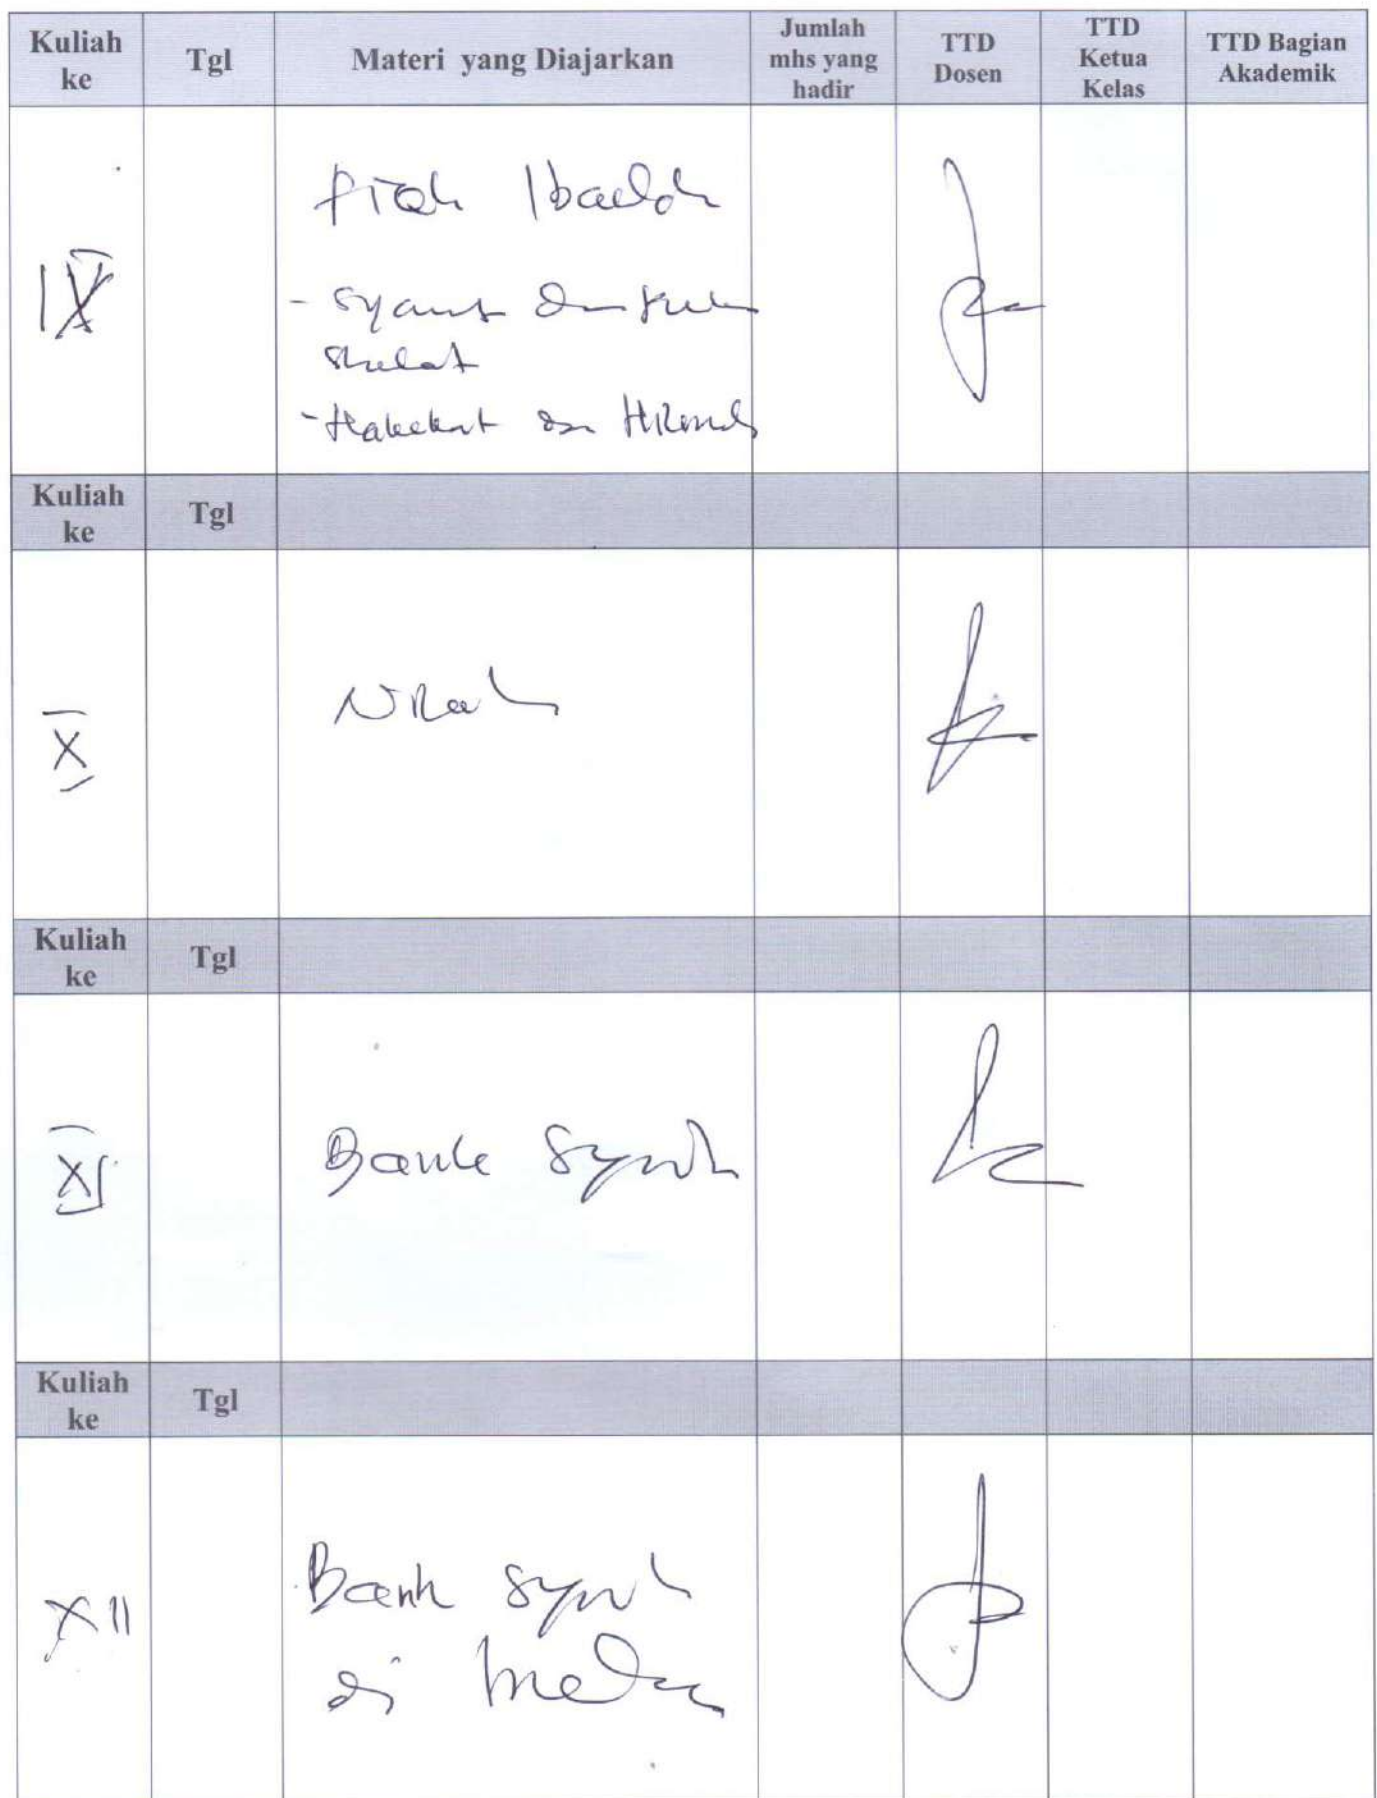 Kuliah ke Tgl Materi yang Diajarkan Jumlah mhs yang hadir TTD Dosen TTD Ketua Kelas TTD Bagian Akademik
IX
Fiqh Ibadah
- Syarat dan
Shalat
- Hakekat dan Hikmah
Kuliah ke Tgl
X Nikah
Kuliah ke Tgl
XI Bank Syariah
Kuliah ke Tgl
XII Bank Syariah
di